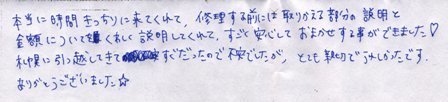 本当に時間きっちりに来てくれて、修理する前には取りかえる部分の説明と
金額についても詳しく説明してくれて、すごく安心しておまかせする事ができました♡
札幌に引っ越してきてすぐだったので不安でしたが、とても親切でうれしかったです。
ありがとうございました☆